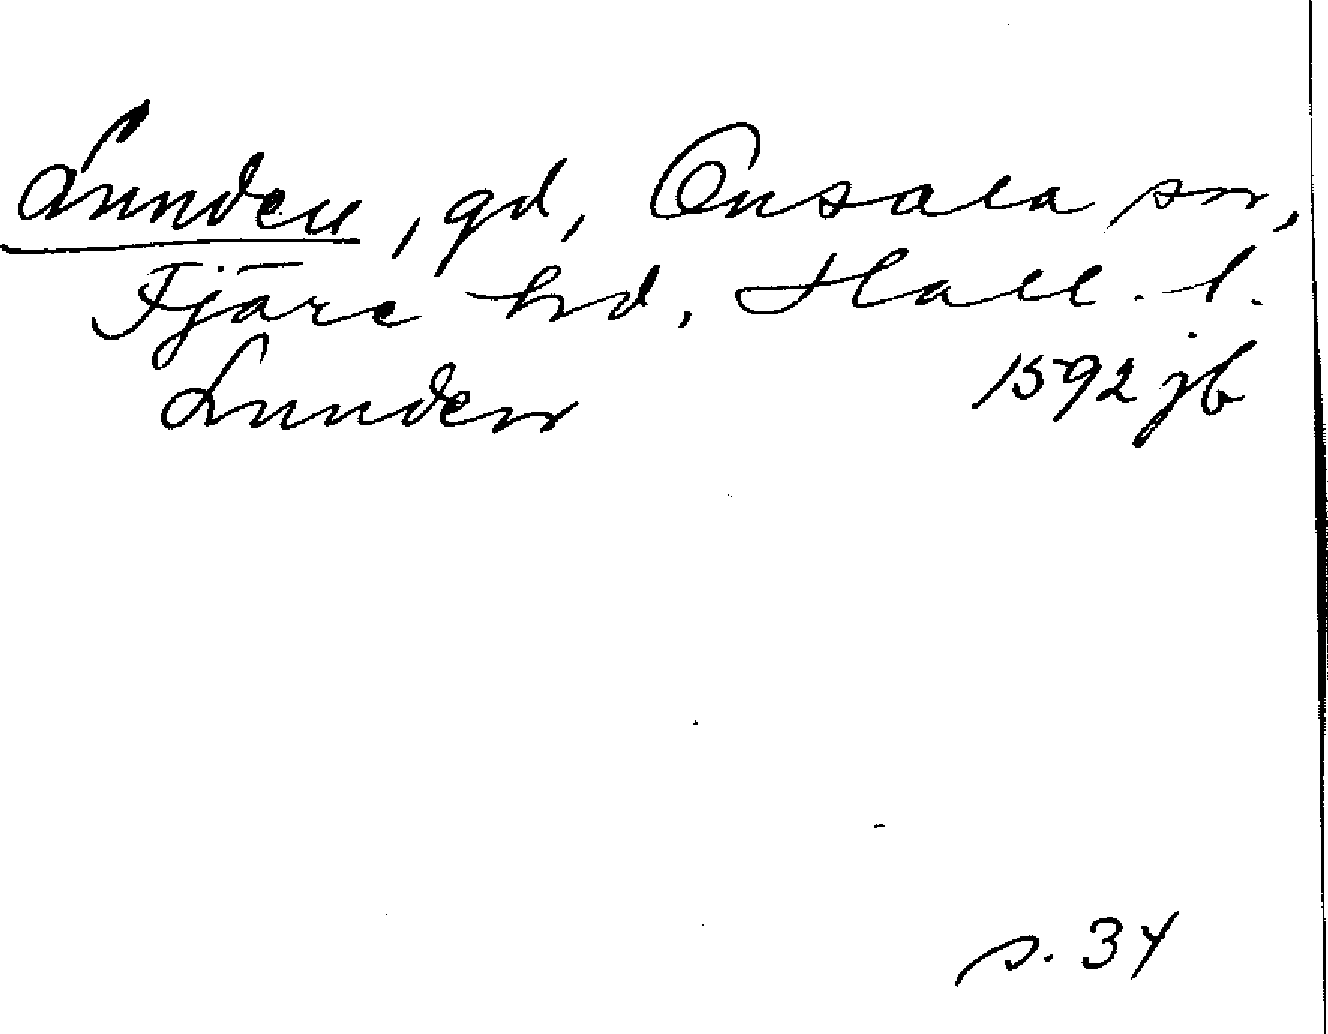 Lunden, gd, Onsala sn,
Fjäre hd, Hall. l.
Lunden 1592 jb
s. 34